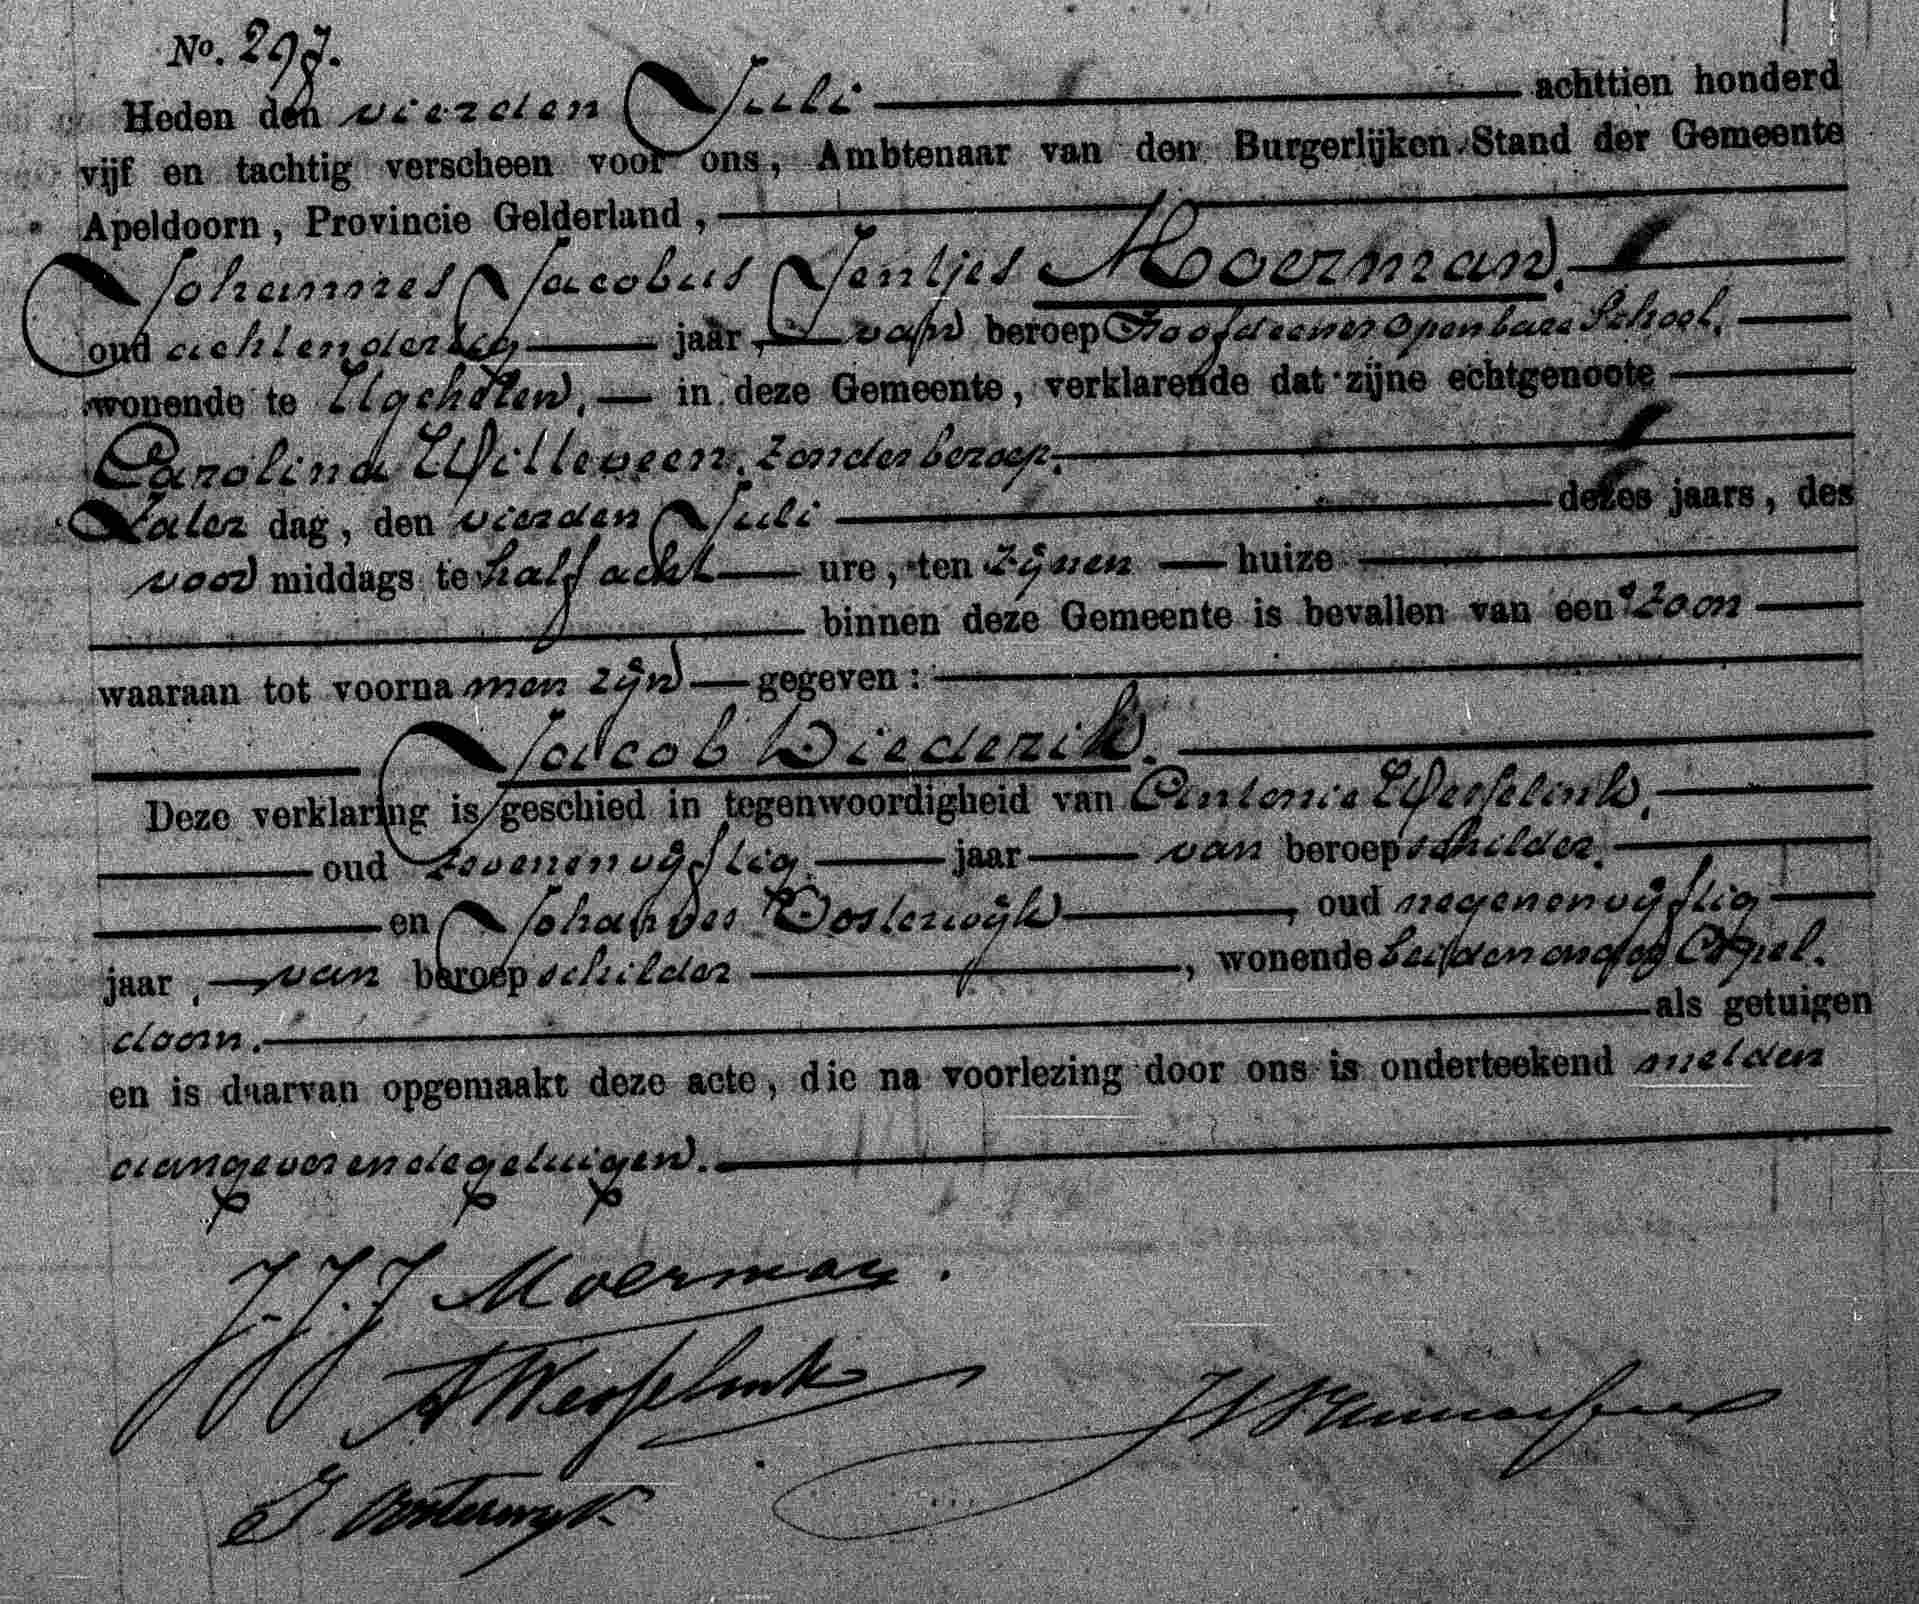 No. 297.
Heden den vierden Juli achttien honderd
vijf en tachtig verscheen voor ons, Ambtenaar van den Burgerlijken Stand der Gemeente
Apeldoorn, Provincie Gelderland,
Johannes Jacobus Jentjes Moerman.
oud achtendertig jaar, van beroep Hoofd eener openbare School,
wonende te Ugchelen, in deze Gemeente, verklarende dat zijne echtgenoote
Carolina Witteveen, zonder beroep,
Zater dag, den vierden Juli dezes jaars, des
voor middags te half acht ure, ten zijnen huize
binnen deze Gemeente is bevallen van een zoon
waaraan tot voorna men zijn gegeven:
Jacob Diederik.
Deze verklaring is geschied in tegenwoordigheid van Antonie Wesselink,
oud zevenenvijftig jaar van beroep schilder,
en Johannes Oosterwijk, oud negenenvijftig
jaar, van beroep schilder, wonende beiden onder Apel-
doorn. als getuigen
en is daarvan opgemaakt deze acte, die na voorlezing door ons is onderteekend met den
aangever en de getuigen.
J. J. J Moerman.
A Wesselink
J. Oosterwyk